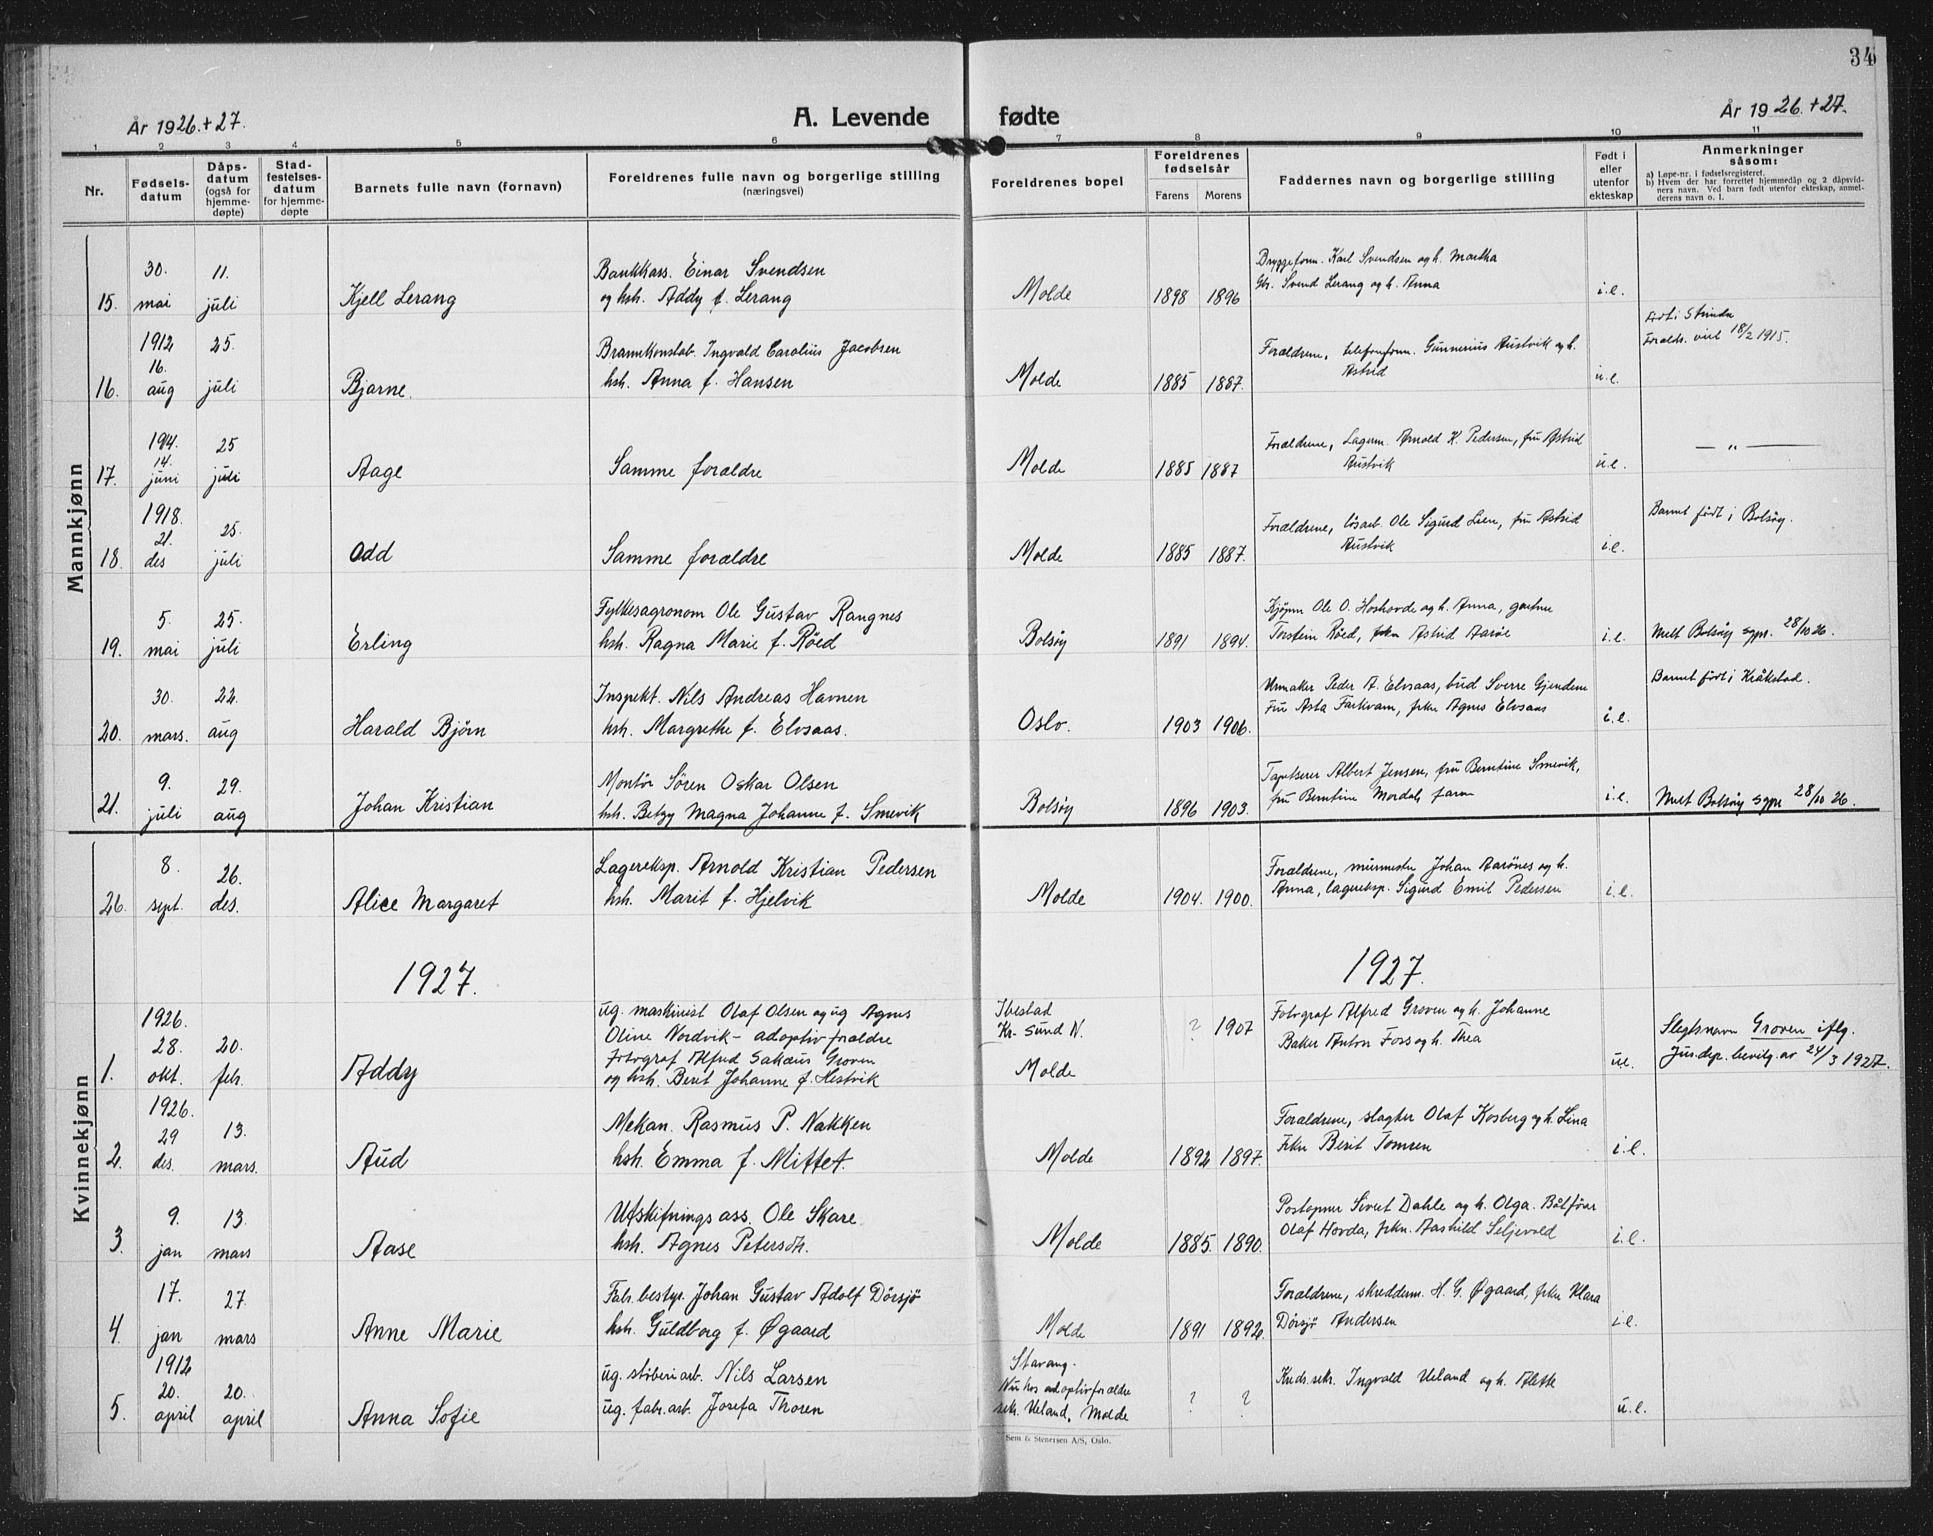 34
År 1926.+27.
A. Levende fødte
År 1926.+27.
1 2 3 4 5 6 7 8 9 10 11
Nr.
Fødsels-
datum
Dåps-
datum
(også for
hjemme-
døpte)
Stad-
festelses-
datum
for hjemme-
døpte
Barnets fulle navn (fornavn)
Foreldrenes fulle navn og borgerlige stilling
(næringsvei)
Foreldrenes bopel
Foreldrenes
fødselsår
Farens Morens
Faddernes navn og borgerlige stilling
Født i
eller
utenfor
ekteskap
Anmerkninger
såsom:
a) Løpe-nr. i fødselsregisteret.
b) Hvem der har forrettet hjemmedåp og 2 dåpsvid-
ners navn. Ved barn født utenfor ekteskap, anmel-
derens navn o. l.
Mannkjønn
15. 30. mai 11. juli Kjell Lerang
Bankkass. Einar Svendsen
og hst. Addy f. Lerang
Molde 1898 1896
Bryggeform. Karl Svendsen og h. Martha
Gbr. Svend Lerang og h. Anna
i.e.
16. 1912 16. aug 25. juli Bjarne.
Brannkonstab. Ingvald Carolius Jacobsen
hst. Anna f. Hansen
Molde 1885 1887.
Forældrene, telefonform. Gunnerius Austvik og h.
Astrid
u.e.
Født i Strinda
Foreldr. viet 18/2 1915.
17. 1914. 14. juni 25 juli Aage
Samme forældre
Molde 1885 1887
Forældrene, Lagerm. Arnold K. Pedersen, fru Astrid
Austvik
u.e.
— „ —
18. 1918. 21. des 25. juli Odd
Samme forældre
Molde 1885 1887.
Forældrene, løsarb. Ole Sigurd Lien, fru Astrid
Austvik
i.e.
Barnet født i Bolsøy.
19. 5. mai 25. juli Erling
Fylkesagronom Ole Gustav Rangnes
hst. Ragna Marie f. Røed
Bolsøy 1891 1894.
Kjøpm Ole O. Hoshovde og h. Anna, gartner
Torstein Røed, frkn Astrid Aarøe
i.e.
Melt Bolsøy sgpr. 28/10 26.
20. 30. mars. 22. aug Harald Bjørn
Inspekt. Nils Andreas Havnen
hst. Margrethe f. Elvsaas.
Oslo. 1903 1906.
Urmaker Peder A. Elvsaas, bud Sverre Gjendem
Fru Asta Farkvam, frkn Agnes Elvsaas
i.e.
Barnet født i Kråkstad.
21. 9. juli 29. aug Johan Kristian
Montør Søren Oskar Olsen
hst. Betzy Magna Johanne f. Smevik
Bolsøy 1896 1903.
Tapetserer Albert Jensen, fru Berntine Smevik,
fru Berntine Mordal,
i.e.
Melt Bolsøy sgpr 28/10 26.
Kvinnekjønn
26. 8. sept. 26. des. Alice Margaret
Lagereksp. Arnold Kristian Pedersen
hst. Marit f. Hjelvik
Molde 1904. 1900.
Forældrene, murmester Johan Aarønes og h.
Anna, lagereksp. Sigurd Emil Pedersen
i.e.
1927. 1927.
1. 1926. 28. okt. 20. febr. Addy
ug. maskinist Olaf Olsen og ug Agnes
Oline Nordvik – adoptivforældre
Fotograf Alfred Sakæus Groven
og hst. Berit Johanne f. Hestvik
Ibestad
Kr-sund N.
Molde
? 1907
Fotograf Alfred Groven og h. Johanne
Baker Anton Foss og h. Thea
ue.
Slegtsnavn Groven iflg.
Jus.dep. bevilg. av 24/3 1927.
2. 1926. 29 des. 13. mars. Aud
Mekan. Rasmus P. Nakken
hst. Emma f. Mittet.
Molde 1892 1897.
Forældrene, slagter Olaf Kosberg og h. Lina
Frkn Berit Tomren
i.e.
3. 9. jan 13. mars Aase
Utskiftningsass. Ole Skare.
hst. Agnes Petersdt.
Molde 1885. 1890.
Postopner Sivert Dahle og h. Olga. Båtfører
Olaf Hovda, frkn. Aashild Seljevold
i.e.
4. 17. jan 27. mars Anne Marie
Fabr.bestyr. Johan Gustav Adolf Dørsjø
hst. Guldborg f. Øgaard
Molde 1891 1892.
Forældrene, skredderm. H. G. Øgaard, frkn Klara
Dørsjø Andersen
i.e.
5. 1912 20. april 20. april Anna Sofie
ug. støberiarb. Nils Larsen
ug. fabr.arb. Josefa Thoren
Stavang.
Nu hos adoptivforældre
sekr. Ueland, Molde
? ?
Kreds.sekr. Ingvald Ueland og h. Alette
u.e.
Sem & Stenersen A/S, Oslo.